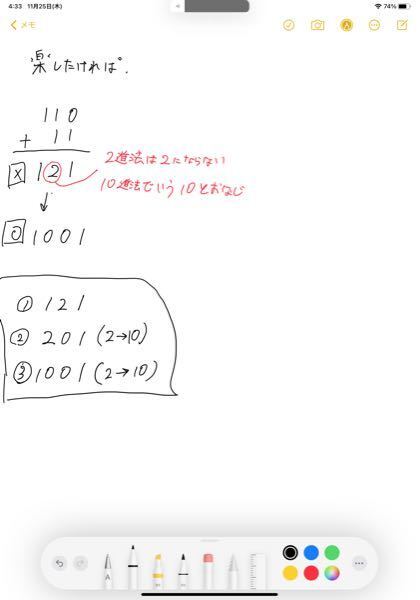 4:33 11月25日(木)
74%
メモ
楽したければ。
110
+ 11
× 121
2進法は2にならない
10進法でいう10とおなじ
↓
○ 1001
① 121
② 201 (2→10)
③ 1001 (2→10)
A